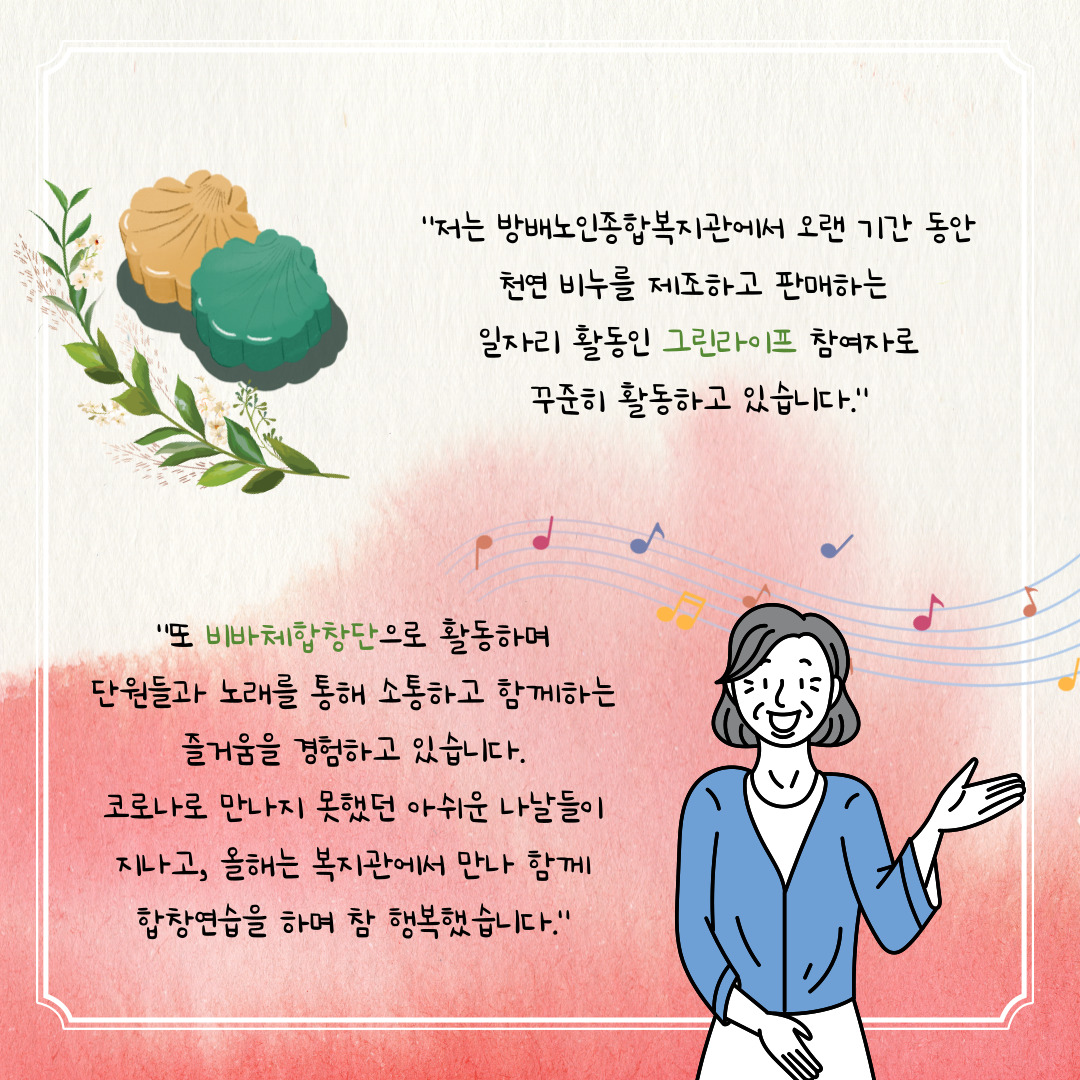 "저는 방배노인종합복지관에서 오랜 기간 동안
천연 비누를 제조하고 판매하는
일자리 활동인 그린라이프 참여자로
꾸준히 활동하고 있습니다."
"또 비바체합창단으로 활동하며
단원들과 노래를 통해 소통하고 함께하는
즐거움을 경험하고 있습니다.
코로나로 만나지 못했던 아쉬운 나날들이
지나고, 올해는 복지관에서 만나 함께
합창연습을 하며 참 행복했습니다."